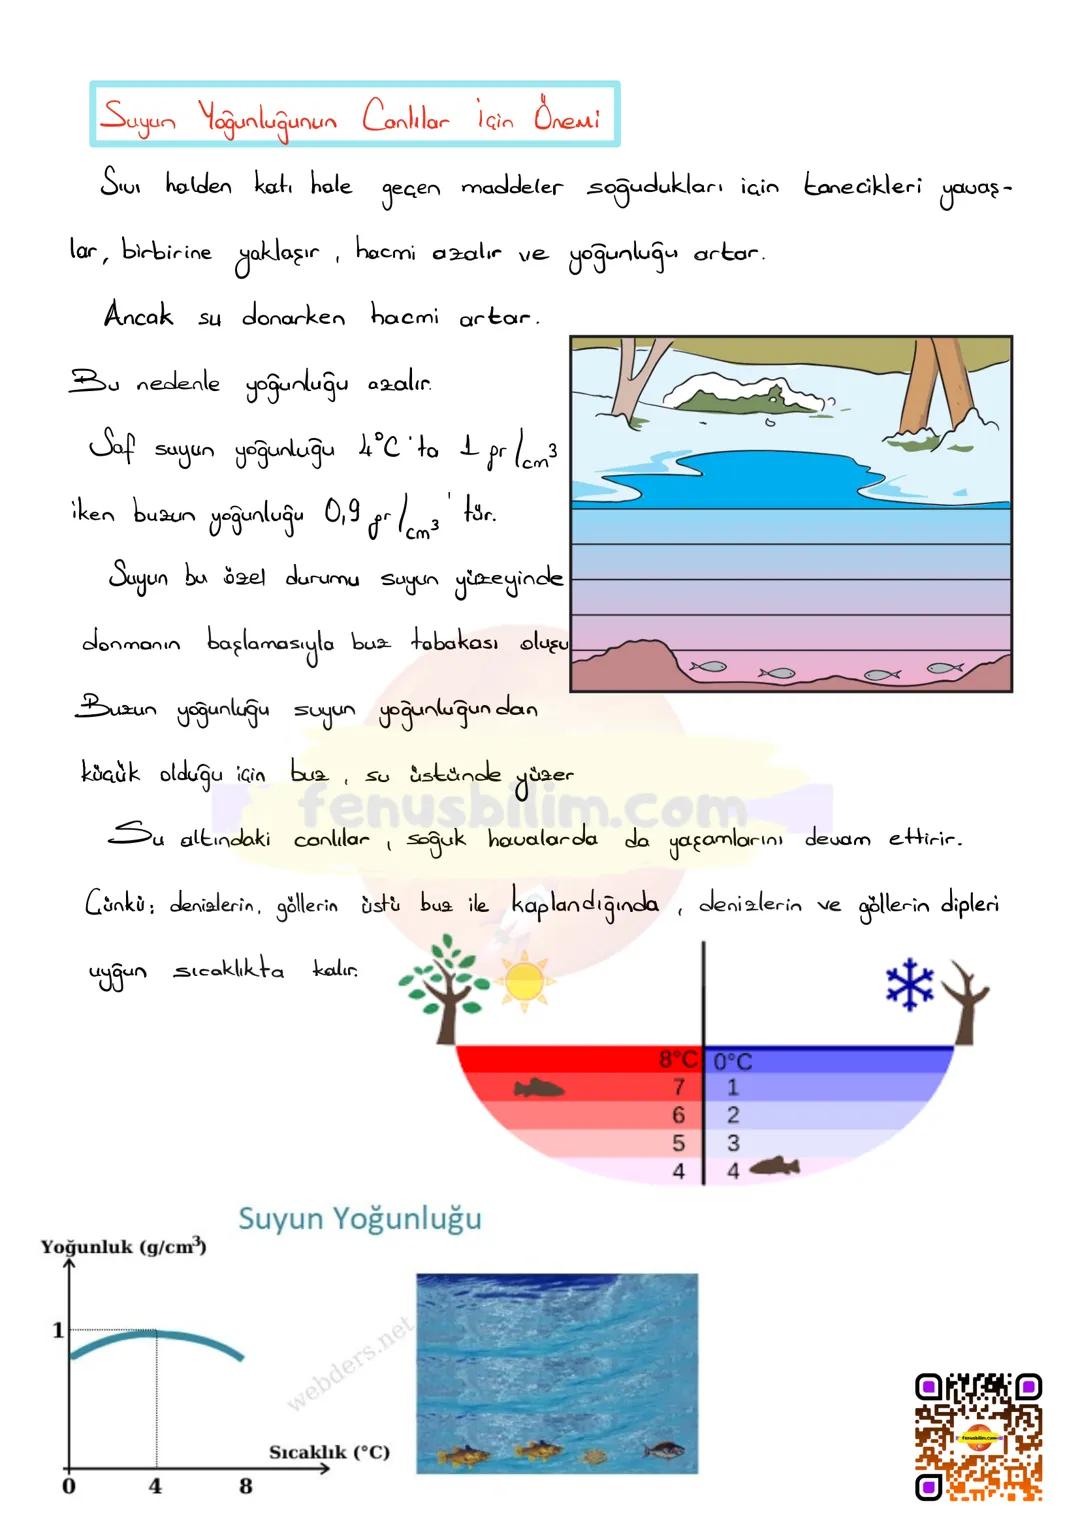 Suyun Yoğunluğunun Canlılar için Önemi
Sıvı halden katı hale geçen maddeler soğudukları için tanecikleri yavaş-
lar, birbirine yaklaşır, hacmi azalır ve yoğunluğu artar.
Ancak su donarken hacmi artar.
Bu nedenle yoğunluğu azalır.
Saf suyun yoğunluğu 4°C'ta 1 gr/cm³
iken buzun yoğunluğu 0,9 gr/cm³'tür.
Suyun bu özel durumu suyun yüzeyinde
donmanın başlamasıyla buz tabakası oluşu
Buzun yoğunluğu suyun yoğunluğundan
küçük olduğu için buz, su üstünde yüzer
fenusbilim.com
Su altındaki canlılar, soğuk havalarda da yaşamlarını devam ettirir.
Çünkü; denizlerin, göllerin üstü buz ile kaplandığında, denizlerin ve göllerin dipleri
uygun sıcaklıkta kalır.
8°C 0°C
7 1
6 2
5 3
4 4
Suyun Yoğunluğu
Yoğunluk (g/cm³)
1
webders.net
Sıcaklık (°C)
0 4 8
fenusbilim.com